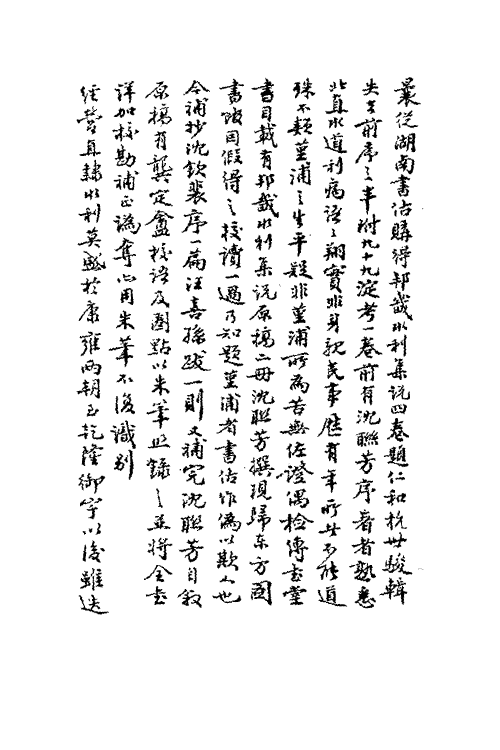 曩從湖南書估購得邦畿水利集說四卷題仁和杭世駿輯
失去前序之半附九十九淀考一卷前有沈聯芳序著者熟悉
北直水道利病語之翔實非身親民事歷有年所者不能道
殊不類堇浦之生平疑非堇浦所為苦無佐證偶檢傳書堂
書目載有邦畿水利集說原搞二冊沈聯芳撰現歸东方圖
書館因假得之校讀一過乃知題堇浦者書估作偽以欺人也
今補抄沈欽裴序一扁汪喜孫跋一則又補完沈聯芳自叙
原搞有龔定盦校語及圈點以朱筆照錄之並將全書
詳加校勘補正譌奪亦用朱筆不復識別
經營直隸水利莫盛於康雍兩朝至乾隆御宇以後雖迭